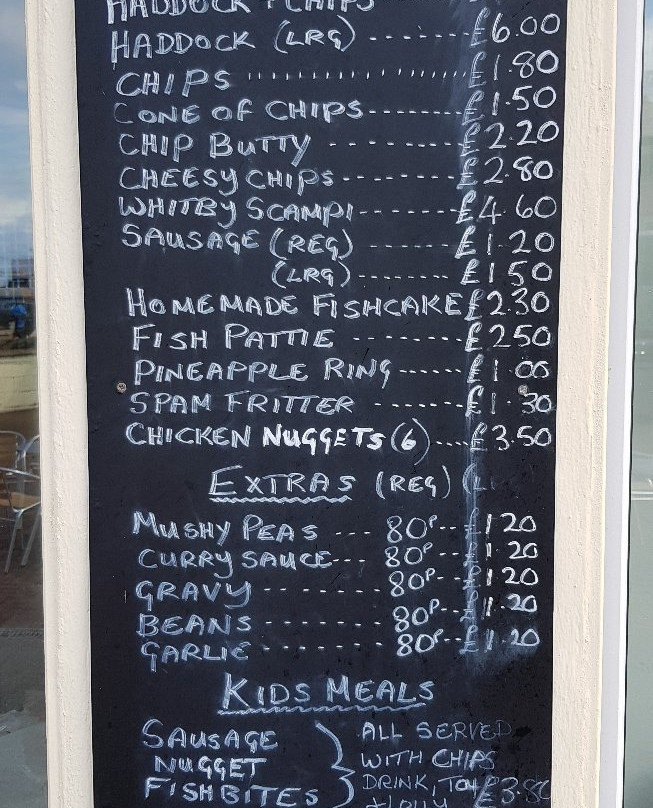 HADDOCK + CHIPS
HADDOCK (LRG) ------- £6.00
CHIPS £1.80
CONE OF CHIPS------- £1.50
CHIP BUTTY - - - - - - £2.20
CHEESY CHIPS------- £2.80
WHITBY SCAMPI------- £4.60
SAUSAGE (REG) ------- £1.20
(LRG) ------- £1.50
HOMEMADE FISHCAKE £2.30
FISH PATTIE ------- £2.50
PINEAPPLE RING------ £1.00
SPAM FRITTER ------- £1.30
CHICKEN NUGGETS (6) ---- £3.50
EXTRAS (REG)
MUSHY PEAS --- 80P--- 1.20
CURRY SAUCE--- 80P--- 1.20
GRAVY ------- 80P--- 1.20
BEANS ------- 80P--- 1.20
GARLIC ------- 80P--- 1.20
KIDS MEALS
SAUSAGE
NUGGET
FISHBITES
ALL SERVED
WITH CHIPS
DRINK, £3.80